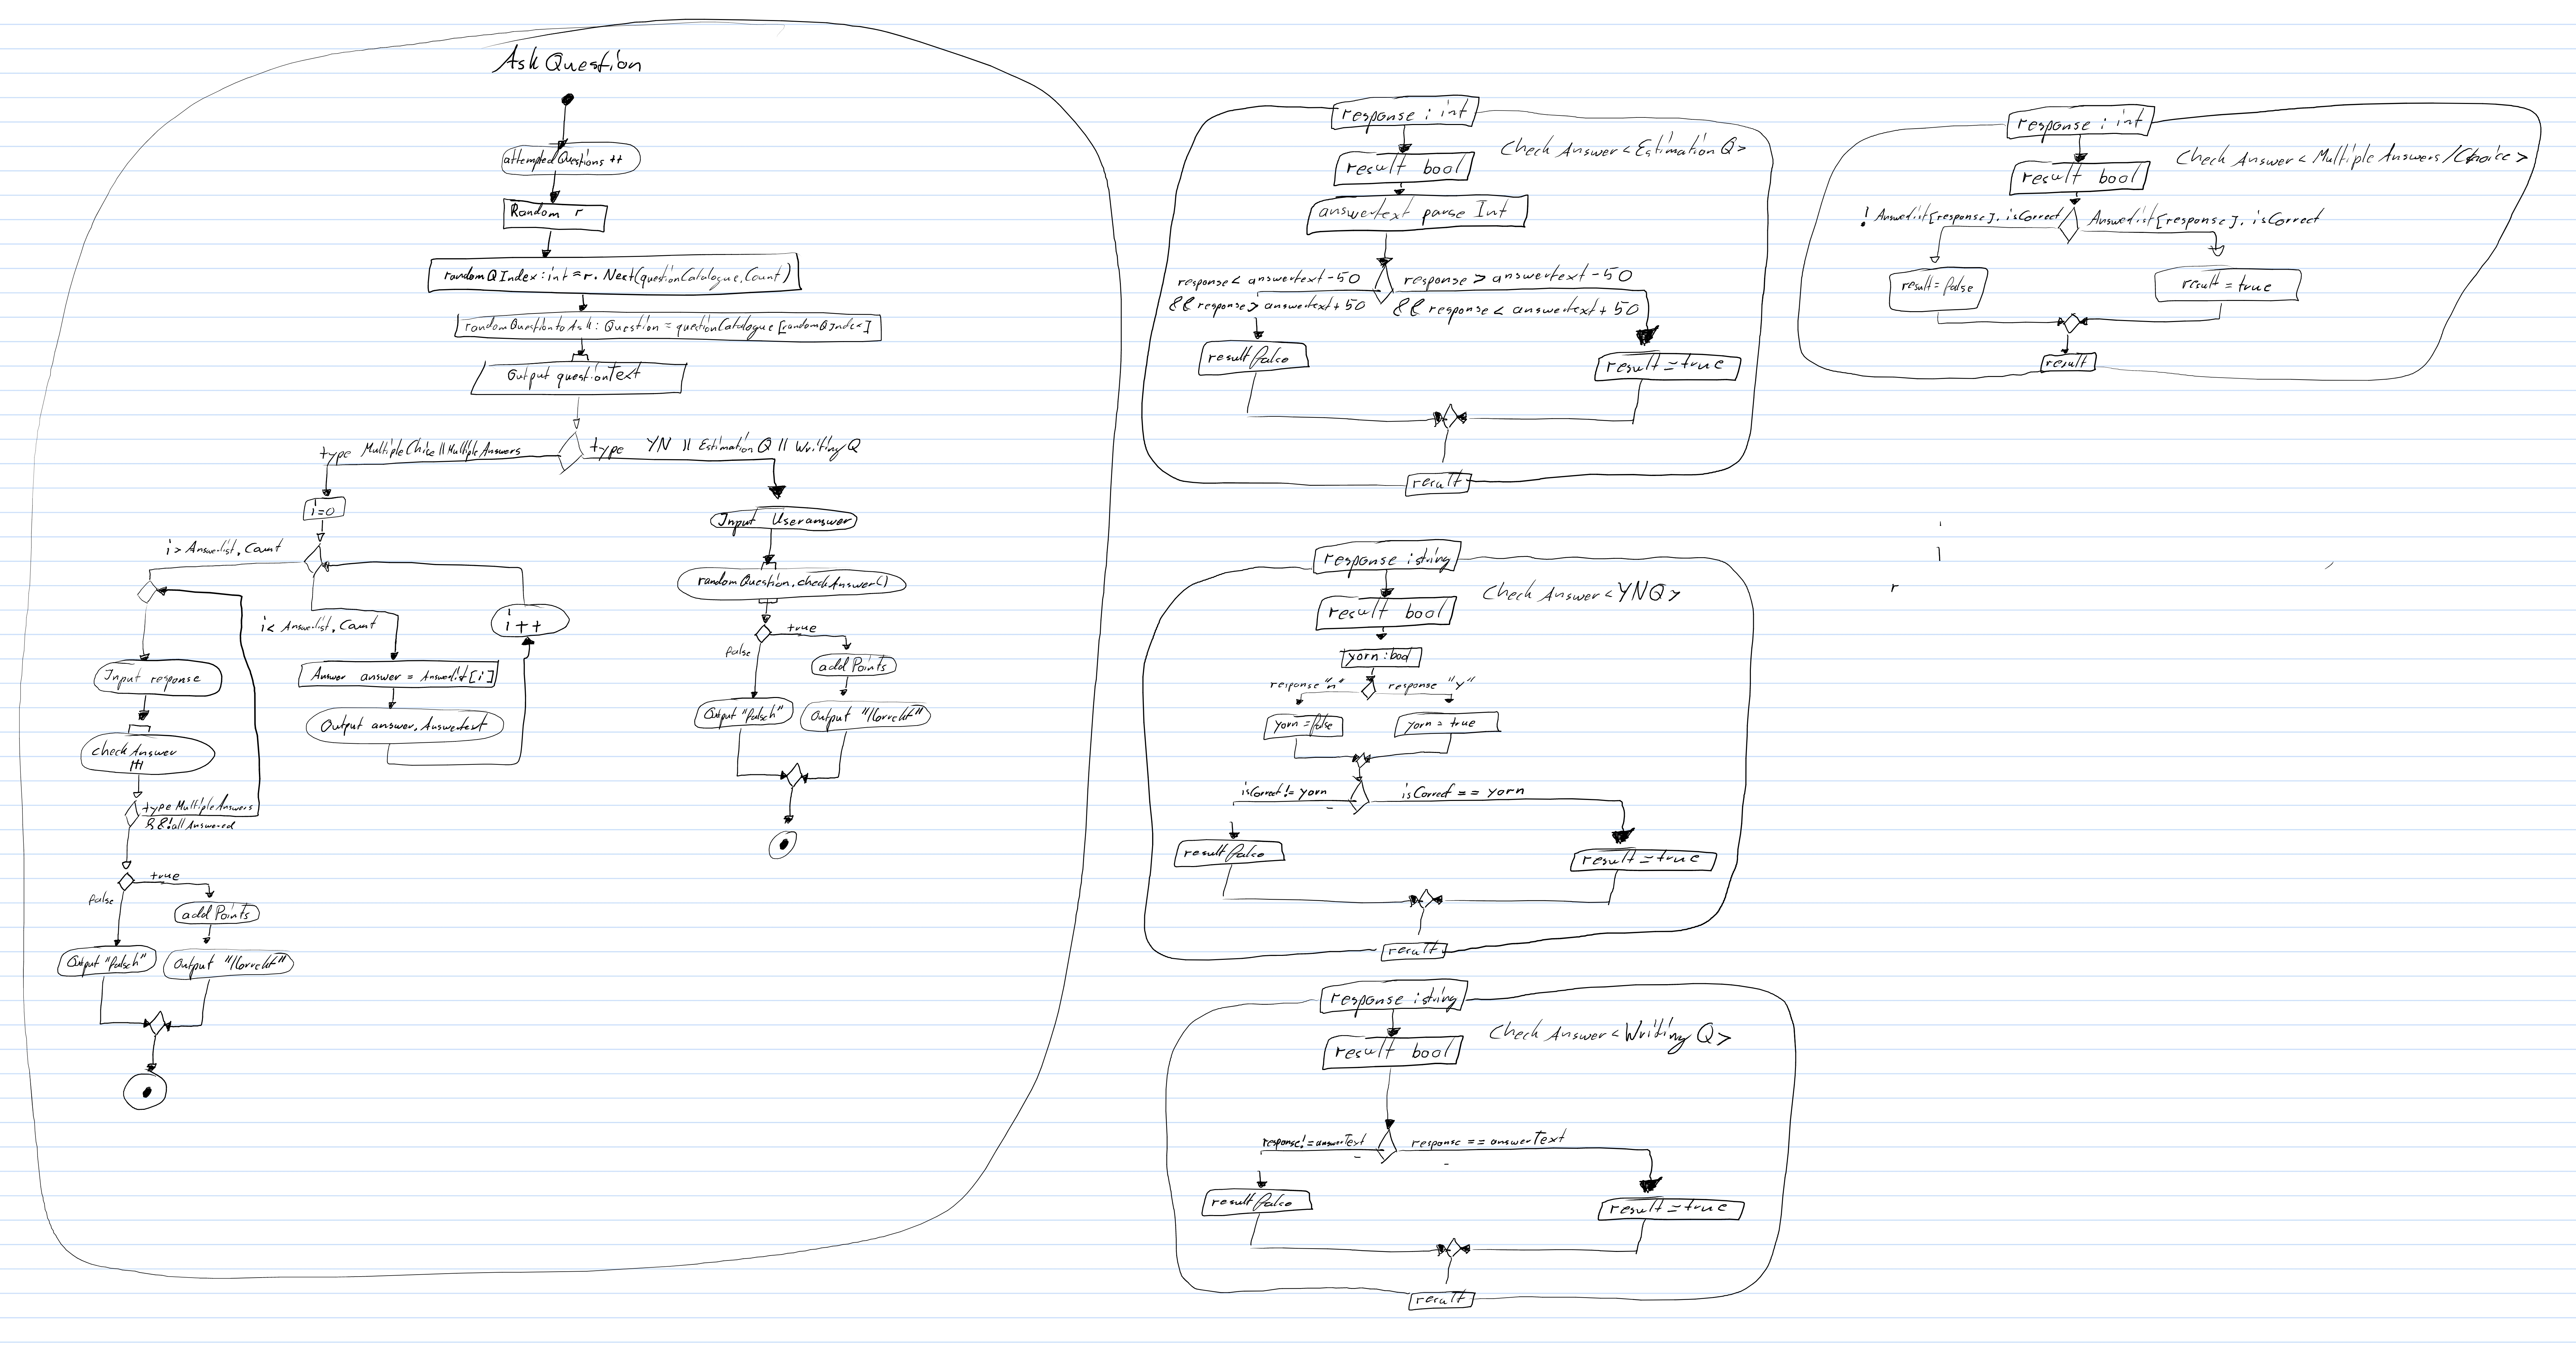 Ask Question
attempted Questions ++
Random r
randomQIndex:int = r.Next(questionCatalogue.Count)
randomQuestiontoAsk: Question = questionCatalogue[randomQIndex]
Output questionText
type MultipleChice || MultipleAnswers
type YN || Estimation Q || Writing Q
i=0
i > Answerlist.Count
i < Answerlist.Count
i++
Input response
Answer answer = Answerlist[i]
Output answer.Answertext
checkAnswer
type MultipleAnswers
&&!allAnswered
true
false
addPoints
Output "falsch"
Output "Korrekt"
Input Useranswer
randomQuestion.checkAnswer()
true
false
addPoints
Output "falsch"
Output "Korrekt"
response : int
Check Answer <Estimation Q>
result bool
answertext parse Int
response < answertext - 50
&& response > answertext + 50
response > answertext - 50
&& response < answertext + 50
result false
result = true
result
response : int
Check Answer <Multiple Answers/Choice>
result bool
! Answerlist[response]. isCorrect
Answerlist[response]. isCorrect
result = false
result = true
result
response :string
Check Answer <YNQ>
result bool
yorn : bool
response "n"
response "y"
yorn = false
yorn = true
isCorrect != yorn
isCorrect == yorn
result false
result = true
result
response :string
Check Answer <Writing Q>
result bool
response! = answerText
response == answerText
result false
result = true
result